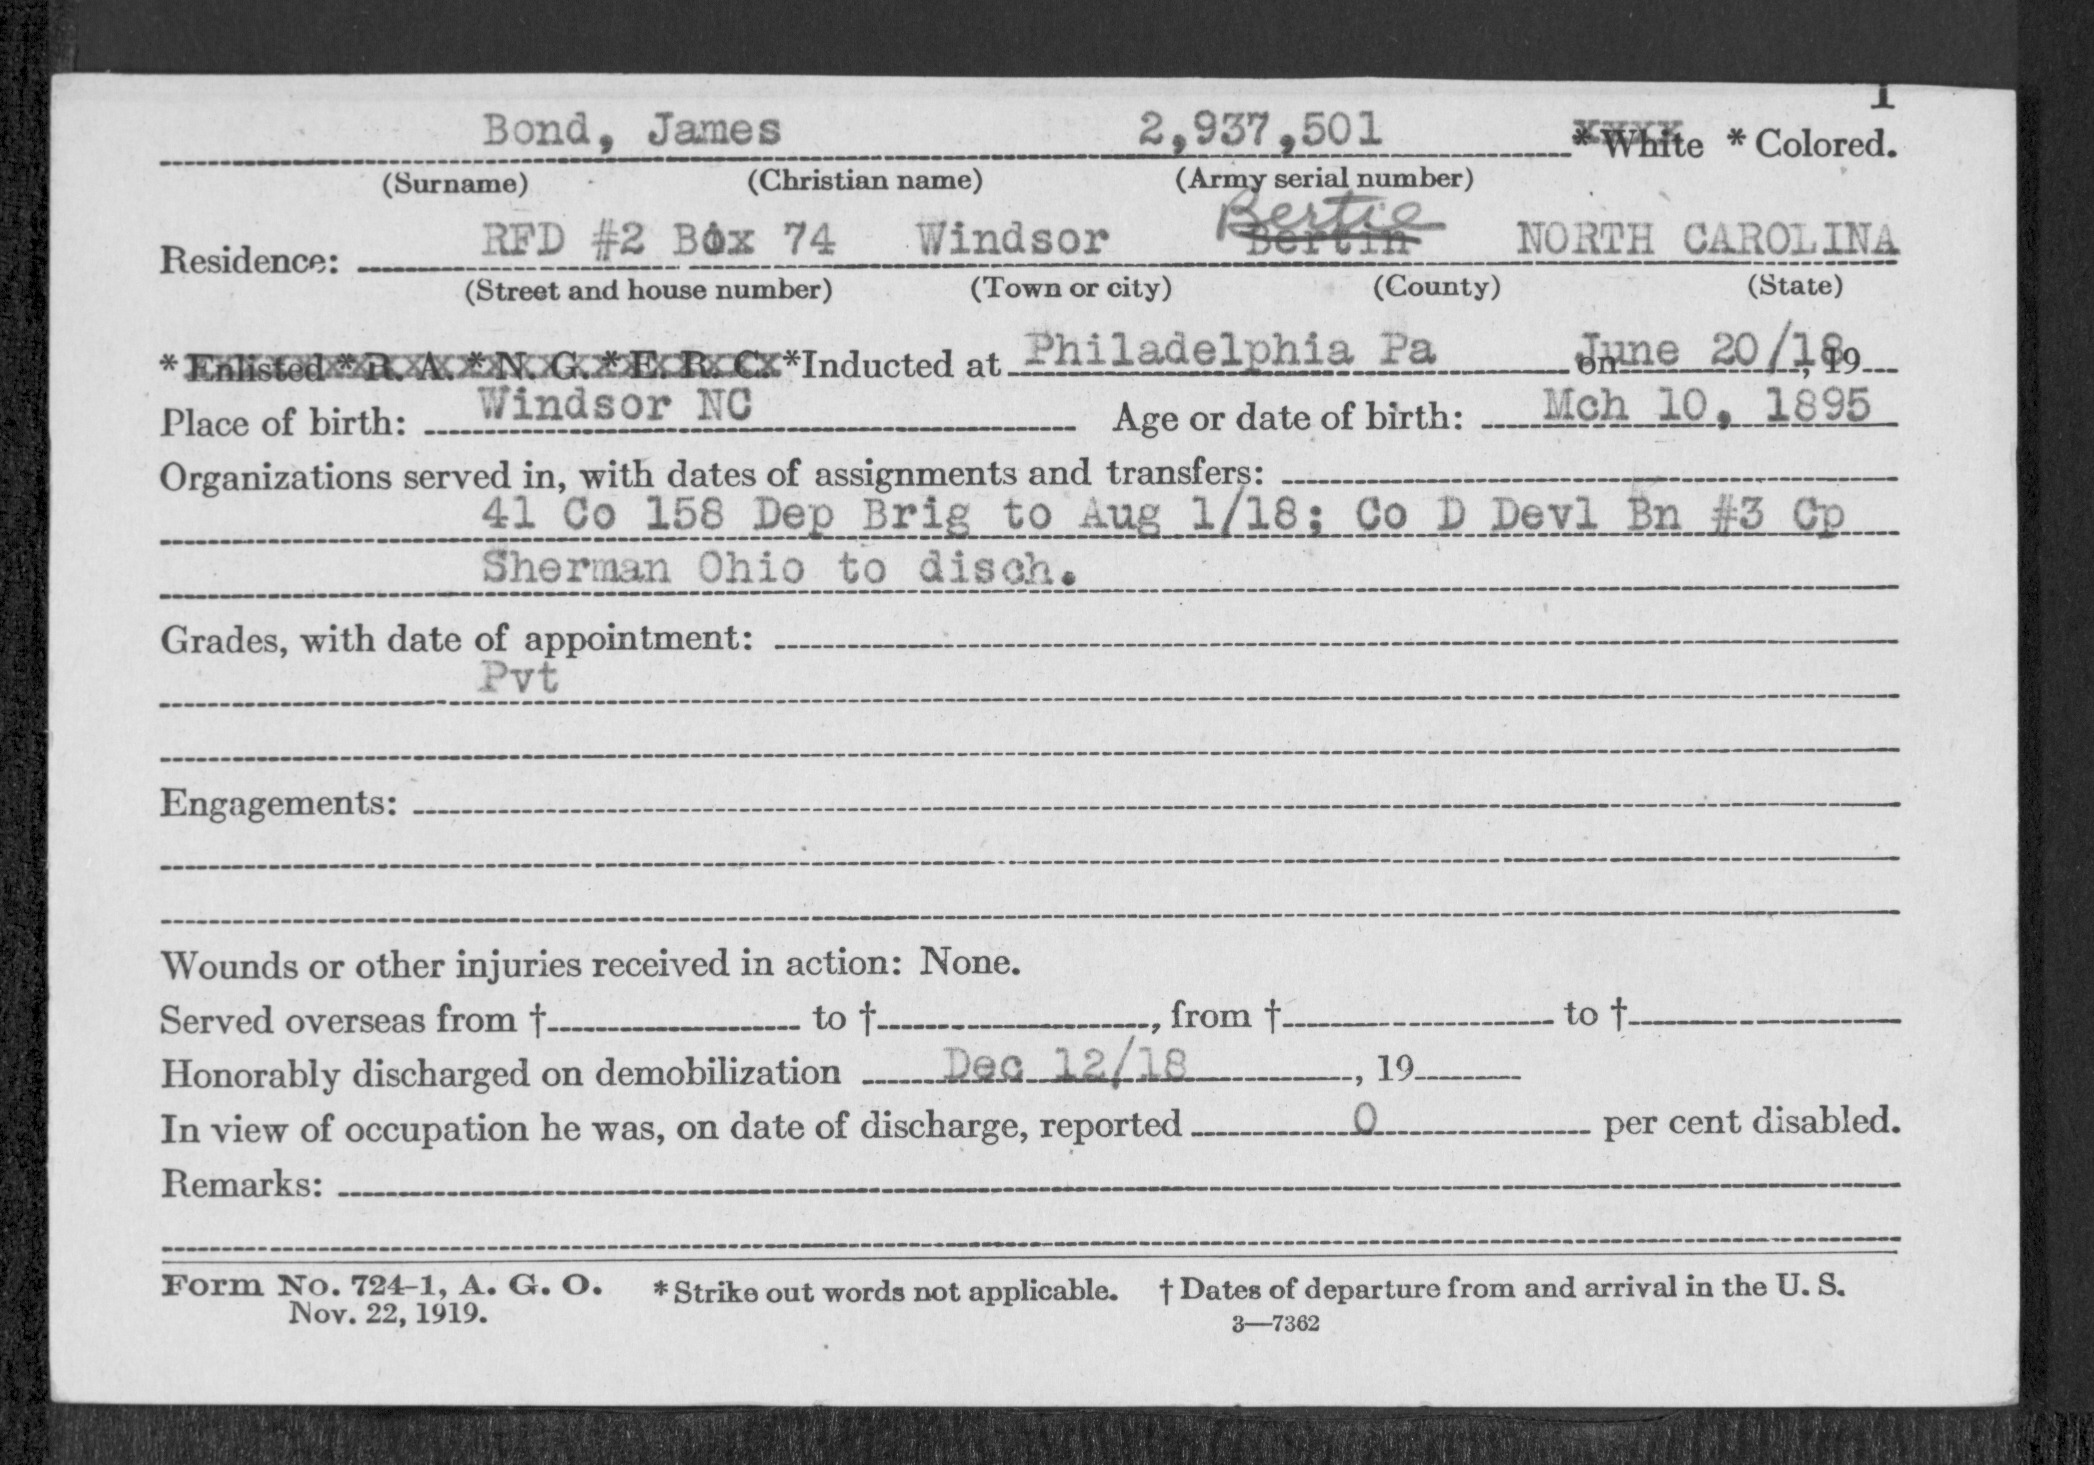 1
Bond, James 2,937,501 * White * Colored.
(Surname) (Christian name) (Army serial number)
Bertie
Residence: RFD #2 Box 74 Windsor Bertin NORTH CAROLINA
(Street and house number) (Town or city) (County) (State)
* Enlisted * R. A. * N. G. * E. R. C. *Inducted at Philadelphia Pa on June 20/18, 19
Place of birth: Windsor NC Age or date of birth: Mch 10, 1895
Organizations served in, with dates of assignments and transfers:
41 Co 158 Dep Brig to Aug 1/18; Co D Devl Bn #3 Cp
Sherman Ohio to disch.
Grades, with date of appointment:
Pvt
Engagements:
Wounds or other injuries received in action: None.
Served overseas from † to †, from † to †
Honorably discharged on demobilization Dec 12/18, 19
In view of occupation he was, on date of discharge, reported 0 per cent disabled.
Remarks:
Form No. 724-1, A. G. O. * Strike out words not applicable. † Dates of departure from and arrival in the U. S.
Nov. 22, 1919. 3—7362